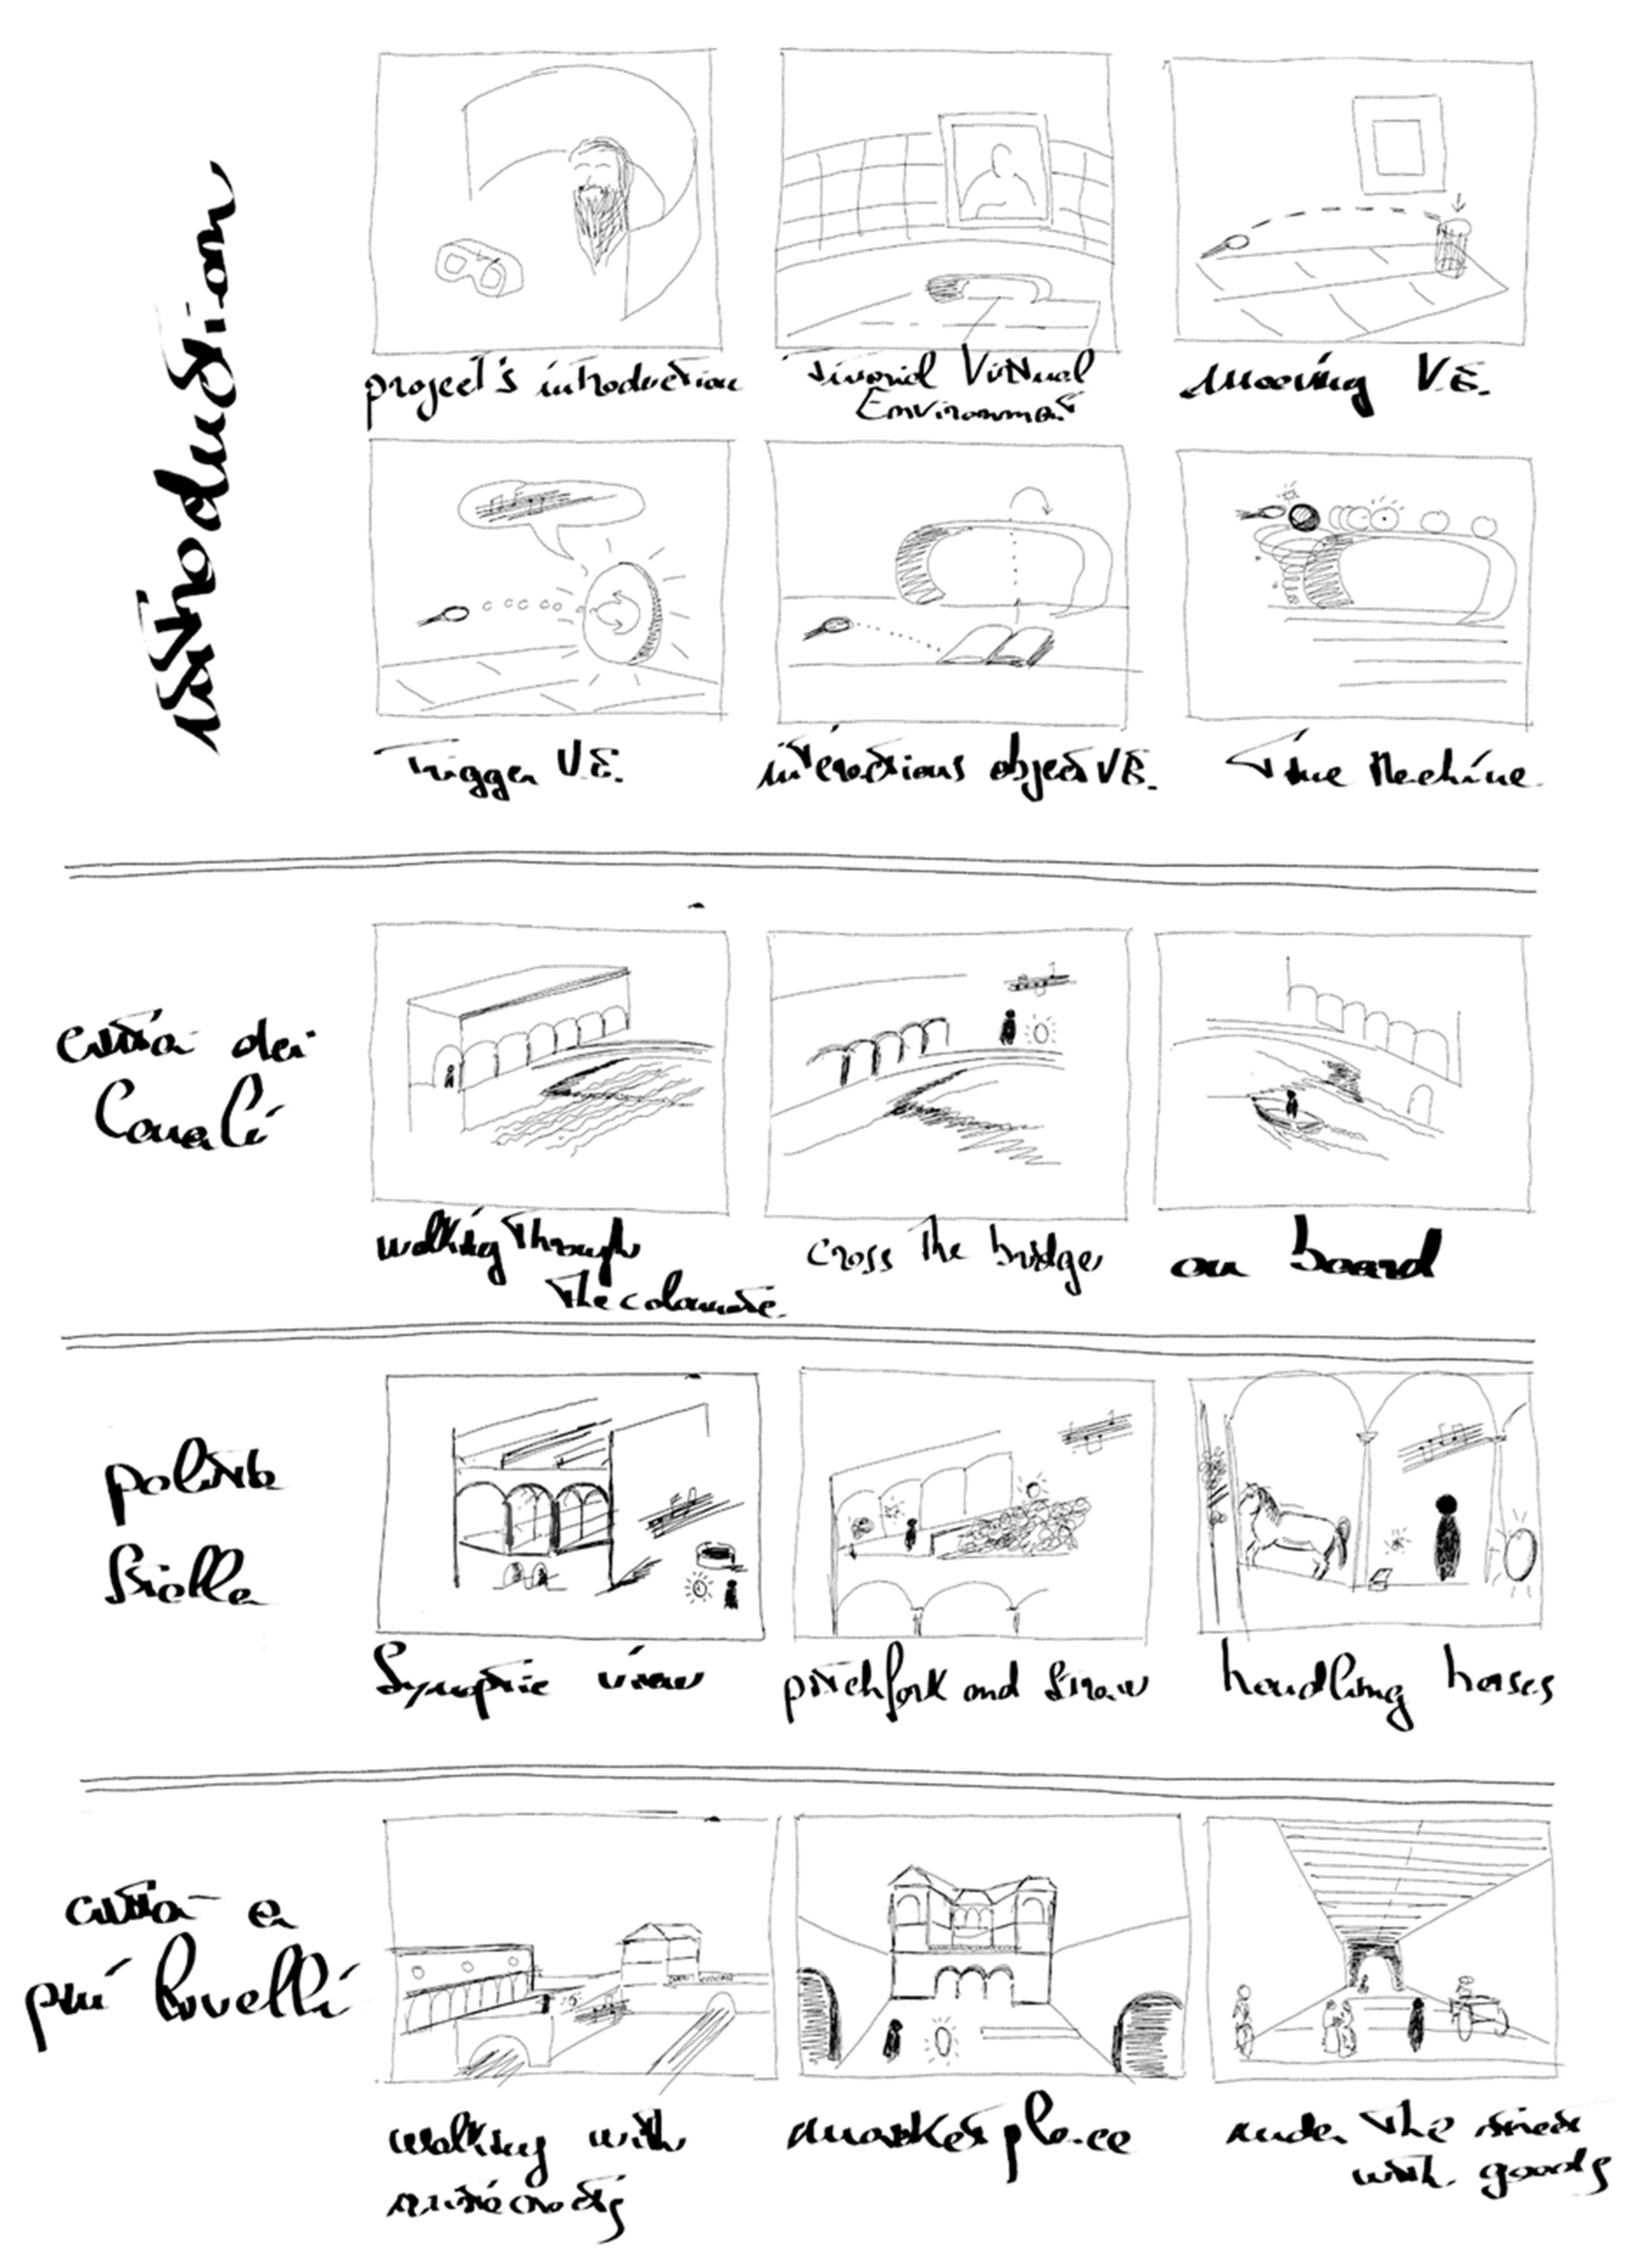 introduction
project's introduction
Virtual
Environment
Mooving V.E.
Trigger V.E.
interactions object V.E.
Time Machine
Città dei
Canali
walking Through
The colonnade.
cross The bridge
on board
polita
Stalla
Synoptic view
pitchfork and Straw
handling horses
città a
più livelli
walking with
market place
under The street
with goods